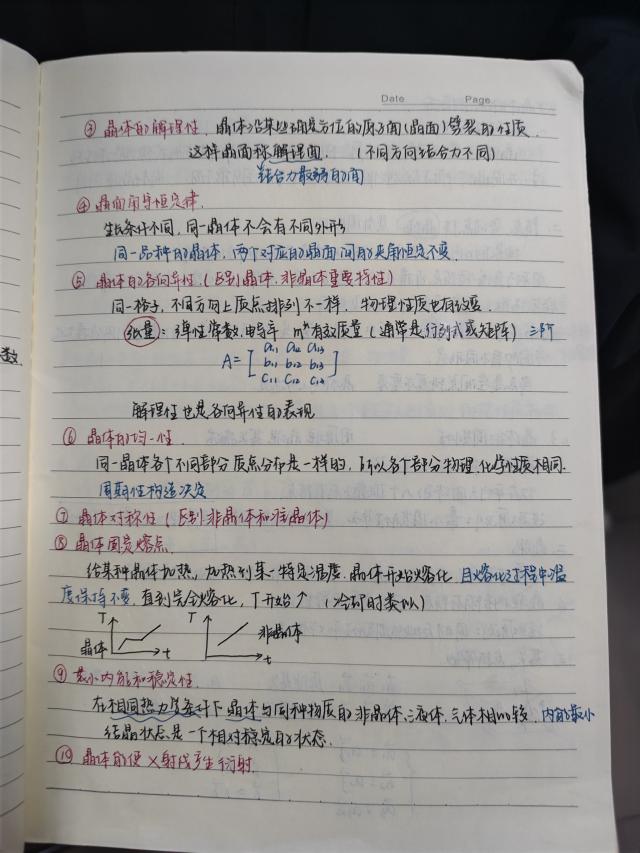 Date Page
③ 晶体的解理性. 晶体沿某些确定方位的原子面(晶面)劈裂的性质.
这样晶面称解理面. (不同方向结合力不同)
结合力最弱的面
④ 晶面角守恒定律.
生长条件不同, 同一晶体不会有不同外形
同一品种的晶体, 两个对应的晶面间的夹角恒定不变.
⑤ 晶体的各向异性 (区别晶体, 非晶体重要特性)
同一格子, 不同方向上质点排列不一样, 物理性质也有改变.
张量: 弹性常数, 电导率 m* 有效质量 (通常是行列式或矩阵) 三阶
数.
a11 a12 a13
A = [ b11 b12 b13 ]
c11 c12 c13
解理性也是各向异性的表现
⑥ 晶体的均一性.
同一晶体各个不同部分质点分布是一样的, 所以各个部分物理, 化学性质相同.
周期性构造决定
⑦ 晶体对称性 (区别非晶体和准晶体)
⑧ 晶体固定熔点.
给某种晶体加热, 加热到某一特定温度, 晶体开始熔化, 且熔化过程中温
度保持不变, 直到完全熔化, T开始↑ (冷却时类似)
T T
晶体 t 非晶体 t
⑨ 最小内能和稳定性.
在相同热力学条件下晶体与同种物质的非晶体、液体、气体相比较, 内能最小
结晶状态是一个相对稳定的状态.
⑩ 晶体能使X射线产生衍射.